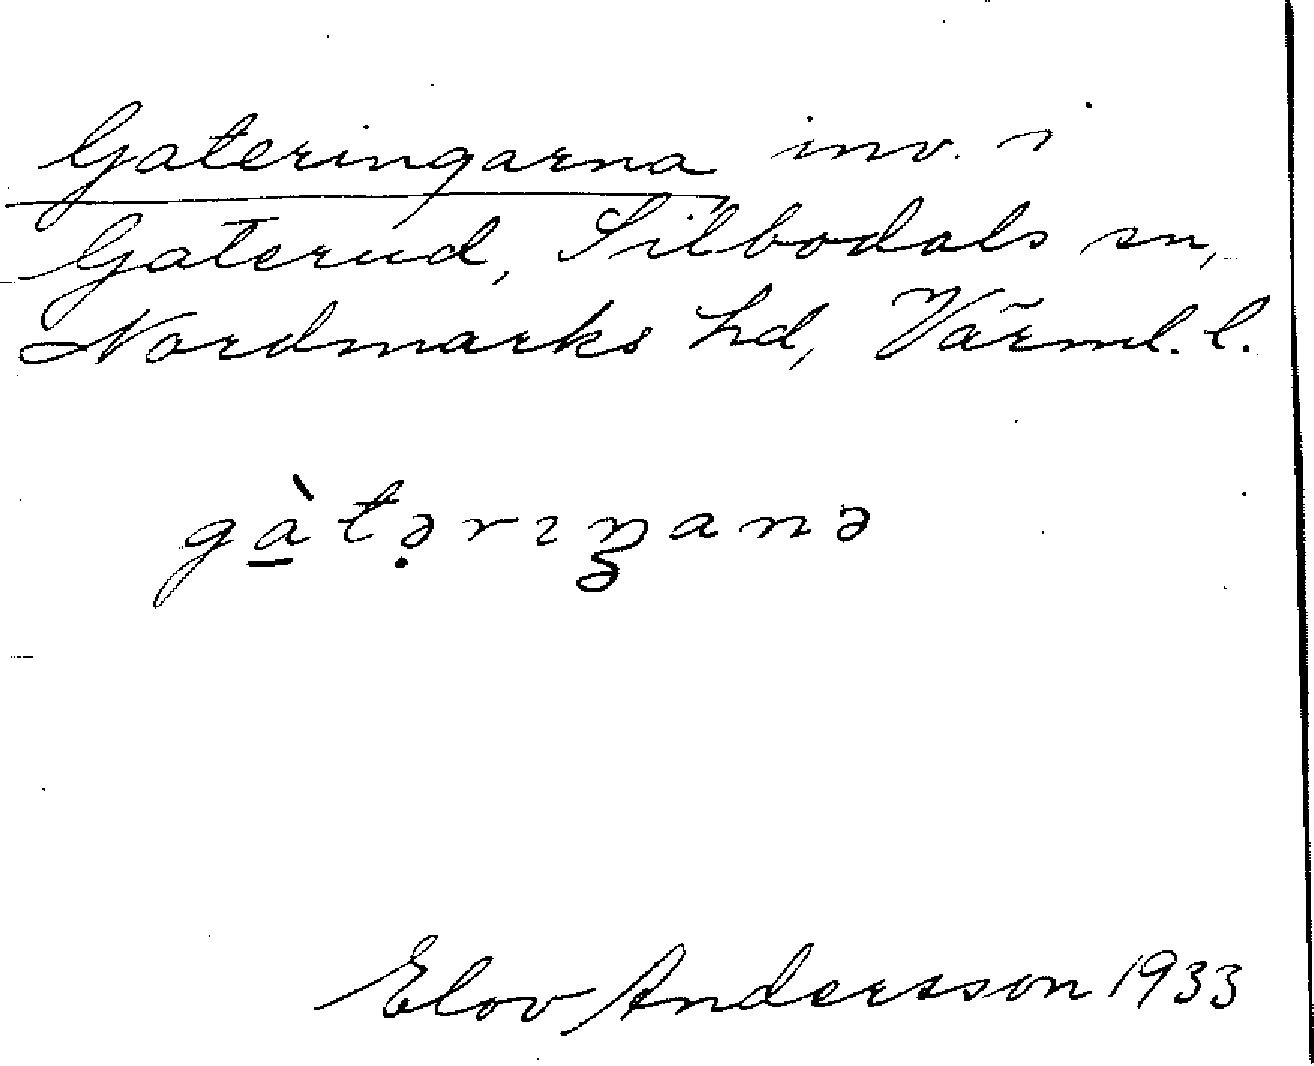 Gateringarna inv. i
Gaterud, Silbodals sn,
Nordmarks hd, Värml. l.
gàtərıŋanə
Elov Andersson 1933